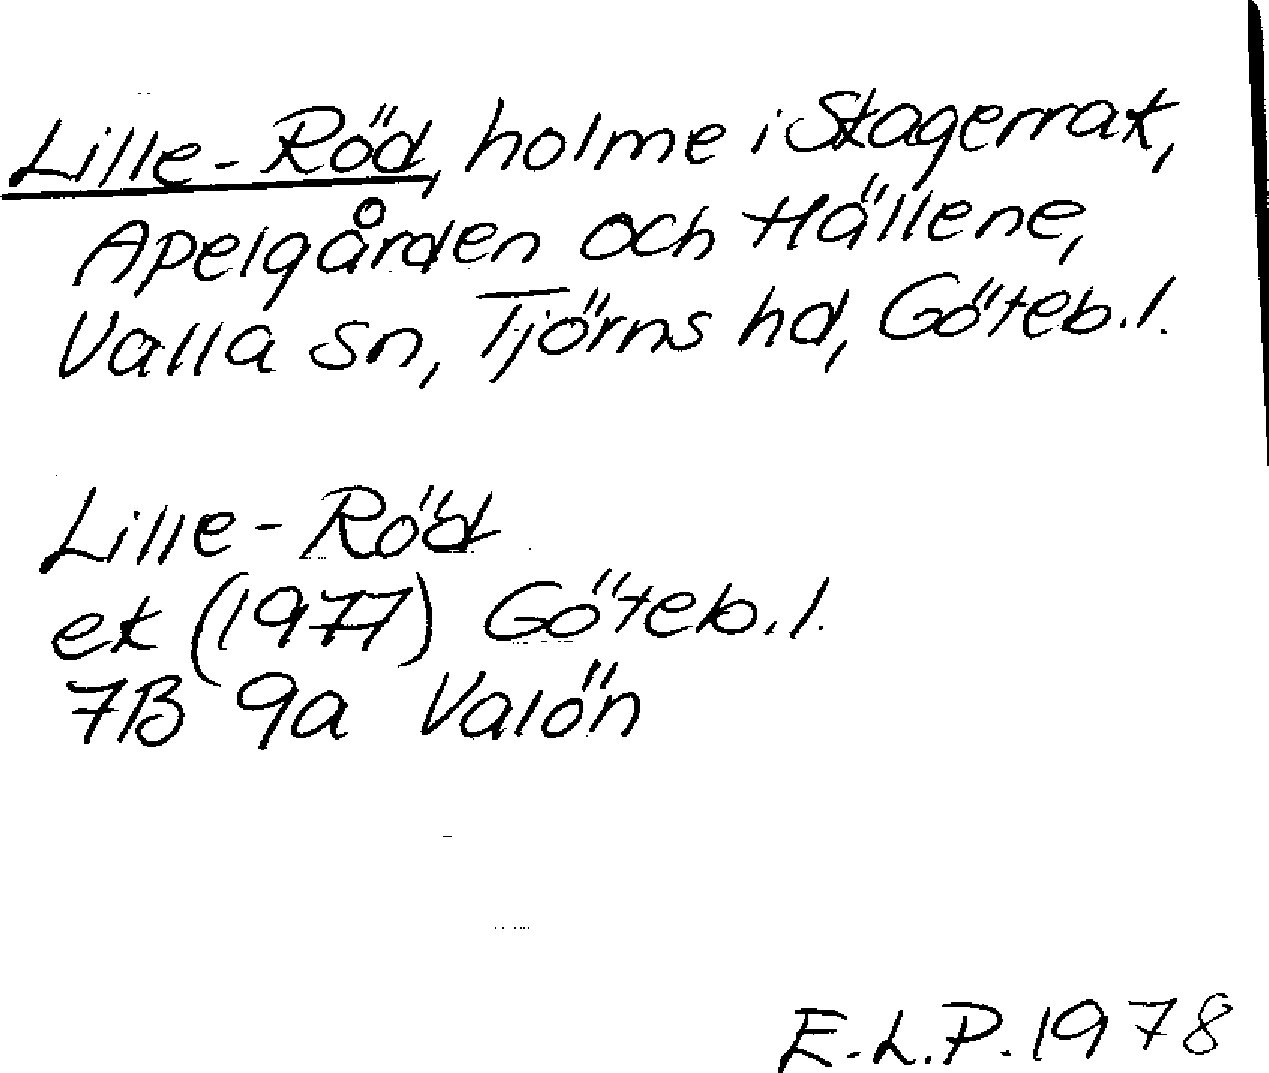 Lille-Röd, holme i Skagerrak,
Apelgården och Hällene,
Valla sn, Tjörns hd, Göteb.l.
Lille-Röd
ek (1977) Göteb.l.
7B 9a Valön
E.L.P. 1978